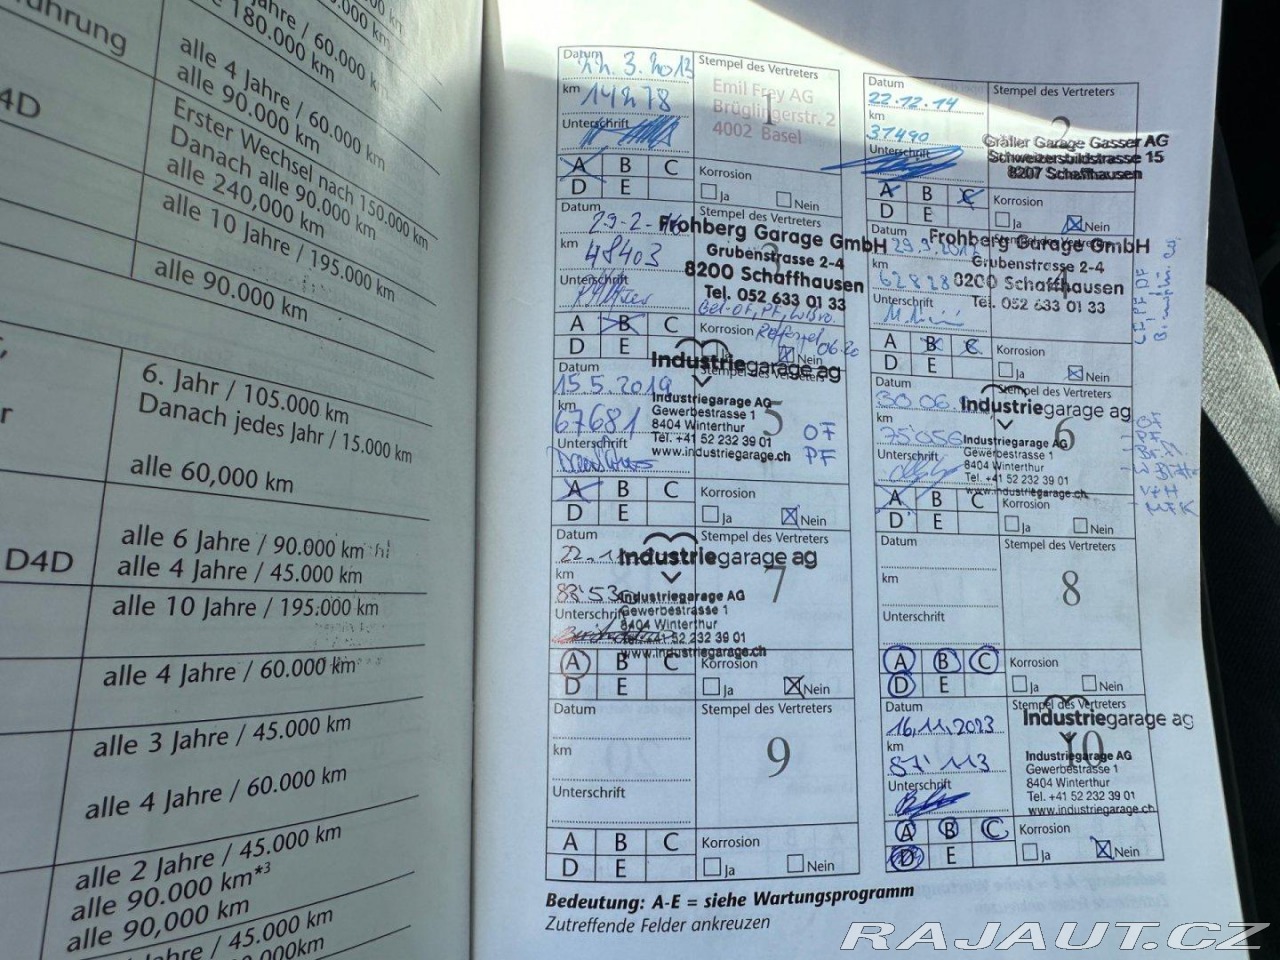 führung
180.000 km
alle 4 Jahre / 60.000 km
alle 90.000 km
4D
Erster Wechsel nach 150.000 km
Danach alle 90.000 km
alle 240,000 km
alle 10 Jahre / 195.000 km
alle 90.000 km
6. Jahr / 105.000 km
Danach jedes Jahr / 15.000 km
alle 60,000 km
D4D
alle 6 Jahre / 90.000 km
alle 4 Jahre / 45.000 km
alle 10 Jahre / 195.000 km
alle 4 Jahre / 60.000 km
alle 3 Jahre / 45.000 km
alle 4 Jahre / 60.000 km
alle 2 Jahre / 45.000 km
alle 90.000 km*3
alle 90,000 km
/ 45.000 km
Datum
3. 2013
Stempel des Vertreters
km 14278
1
Emil Frey AG
Brüglingerstr. 2
4002 Basel
Unterschrift
A B C
D E
Korrosion
Ja Nein
Datum
22.12.14
Stempel des Vertreters
km
37490
2
Gräfler Garage Gasser AG
Schweizersbildstrasse 15
8207 Schaffhausen
Unterschrift
A B C
D E
Korrosion
Ja Nein
Datum
29-2-16
Stempel des Vertreters
km 48403
3
Frohberg Garage GmbH
Grubenstrasse 2-4
8200 Schaffhausen
Tel. 052 633 01 33
Unterschrift
A B C
D E
Korrosion
06.20
Nein
Datum
km
62828
4
Frohberg Garage GmbH
Grubenstrasse 2-4
8200 Schaffhausen
Tel. 052 633 01 33
Unterschrift
A B C
D E
Korrosion
Ja Nein
Datum
15.5.2019
Stempel des Vertreters
km
67681
5
Industriegarage ag
Industriegarage AG
Gewerbestrasse 1
8404 Winterthur
Tel. +41 52 232 39 01
www.industriegarage.ch
OF
PF
Unterschrift
A B C
D E
Korrosion
Ja Nein
Datum
30 06
Stempel des Vertreters
km
75656
6
Industriegarage ag
Industriegarage AG
Gewerbestrasse 1
8404 Winterthur
Tel. +41 52 232 39 01
www.industriegarage.ch
Unterschrift
OF
PF
MFK
A B C
D E
Korrosion
Ja Nein
Datum
22.11
Stempel des Vertreters
km
7
Industriegarage ag
Industriegarage AG
Gewerbestrasse 1
8404 Winterthur
Tel. +41 52 232 39 01
www.industriegarage.ch
Unterschrift
A B C
D E
Korrosion
Ja Nein
Datum
Stempel des Vertreters
km
8
Unterschrift
A B C
D E
Korrosion
Ja Nein
Datum
Stempel des Vertreters
km
9
Unterschrift
A B C
D E
Korrosion
Ja Nein
Datum
16.11.2023
Stempel des Vertreters
km
87'113
10
Industriegarage ag
Industriegarage AG
Gewerbestrasse 1
8404 Winterthur
Tel. +41 52 232 39 01
www.industriegarage.ch
Unterschrift
A B C
D E
Korrosion
Ja Nein
Bedeutung: A-E = siehe Wartungsprogramm
Zutreffende Felder ankreuzen
RAJAUT.CZ